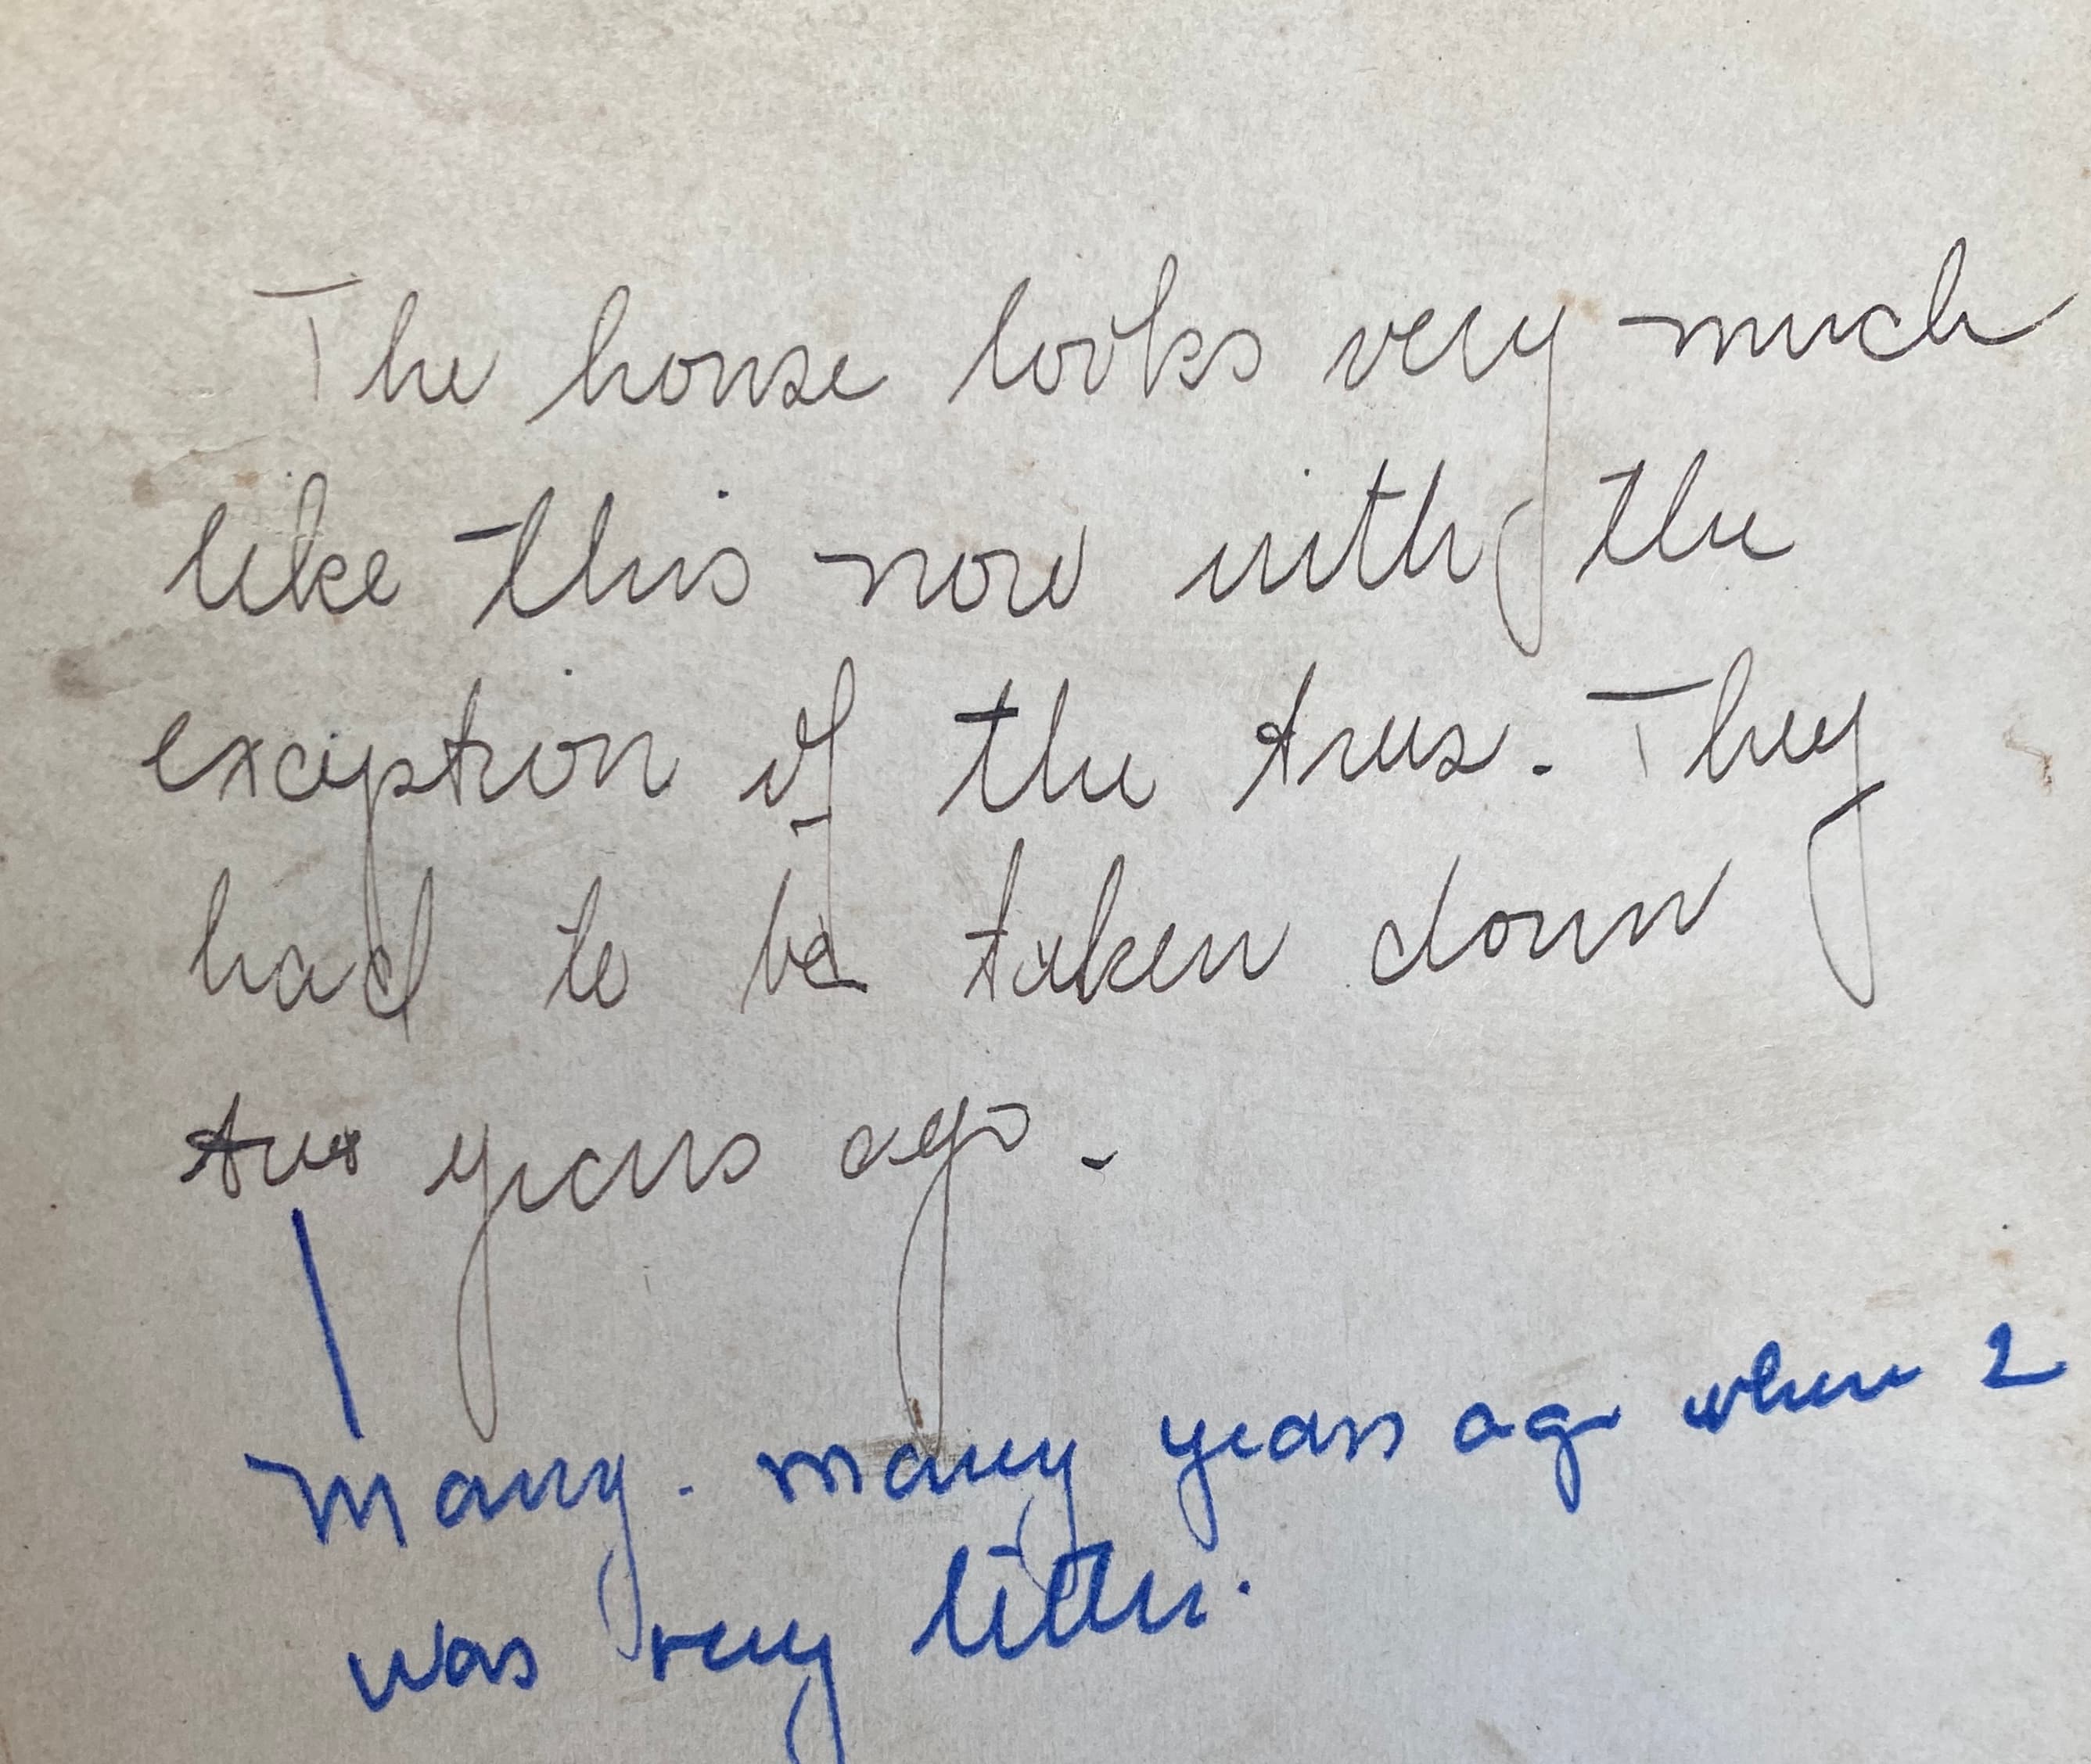 The house looks very much
like this now with the
exception of the trees. They
had to be taken down
two years ago.
Many. many years ago when I
was very little.